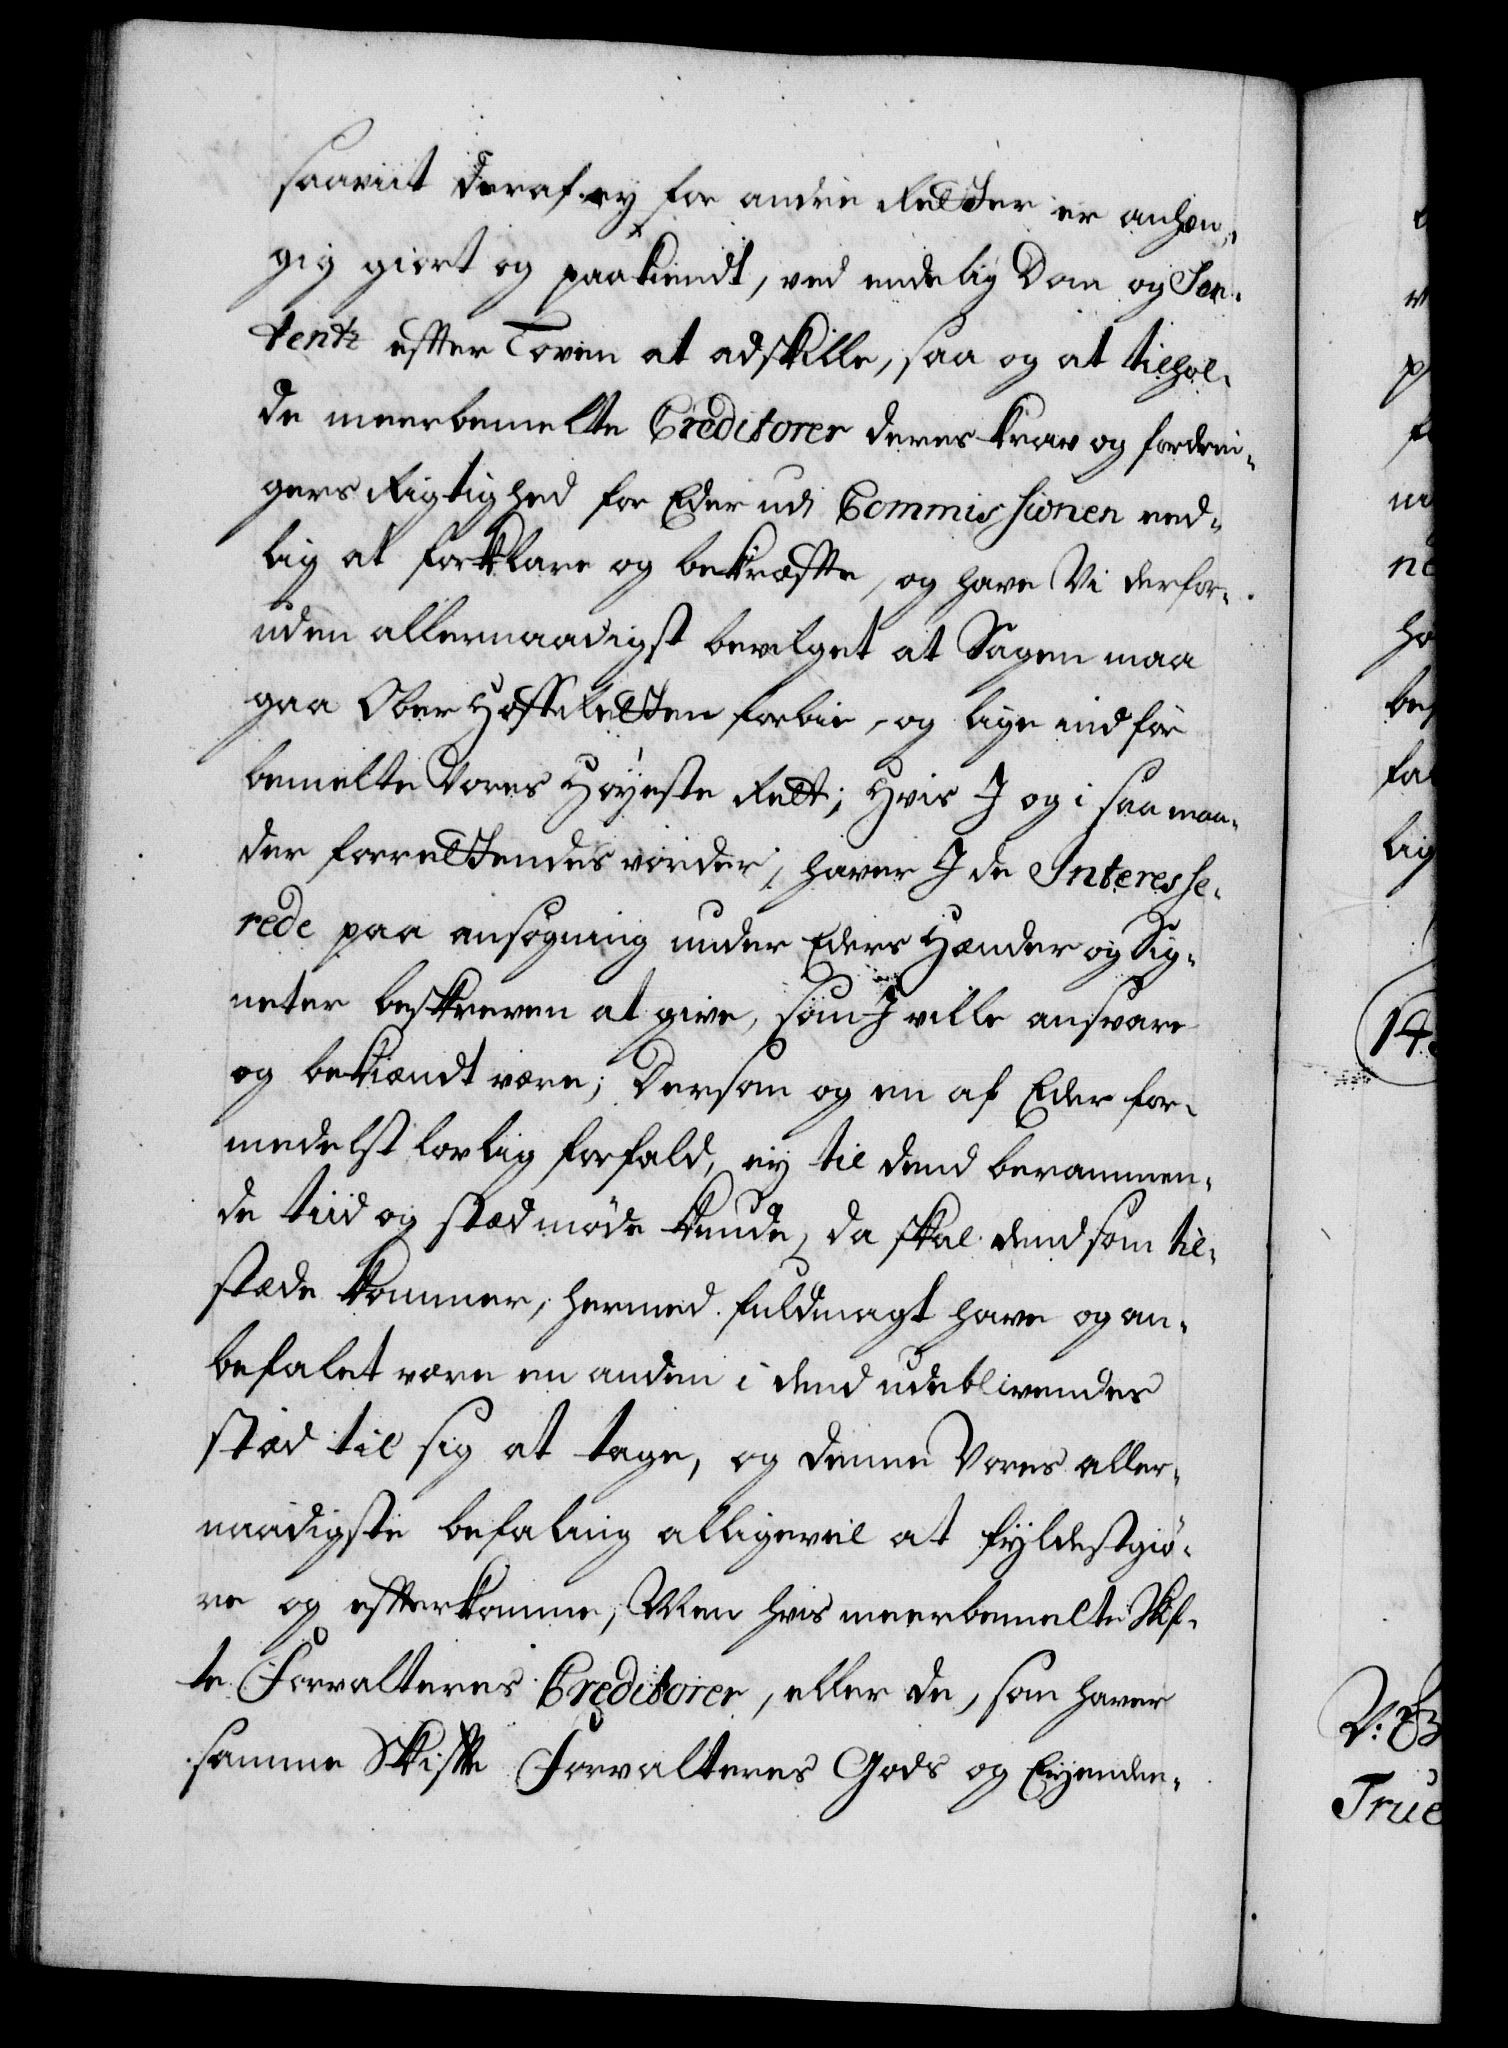 saaviit deraf ey for andre Retter er anhæn¬
gig giort og paakiendt, ved endelig Dom og Sen¬
tentz effter Loven at adskille, saa og at tilhol¬
de meerbemelte Creditorer deres krav og fordrin¬
gers Rigtighed for Eder udi Commissionen eed¬
lig at forklare og bekræffte, og have Vi derfor¬
uden allernaadigst bevilget at Sagen maa
gaa Ober Hoffretten forbie, og lige ind for
bemelte Vores Høyeste Rett; Hvis I og i saa maa¬
der forrettendes vorder, haver I de Interesse¬
rede paa ansøgning under Eders Hænder og Sig¬
neter beskreven at give, som I ville ansvare
og bekiændt være; Dersom og en af Eder for¬
medelst lovlig forfald, ey til dend berammen¬
de tiid og stæd møde kunde, da skal dend som til¬
stæde kommer, hermed fuldmagt have og an¬
befalet være en anden i dend udeblivendes
stæd til sig at tage, og denne Vores aller¬
naadigste befaling alligevel at fyldestgiø¬
re og efterkomme, Men hvis meerbemelte Skif¬
te Forvalteres Creditorer, eller de, som haver
samme Skifte Forvalteres Gods og Eyende¬
14
V: B
True